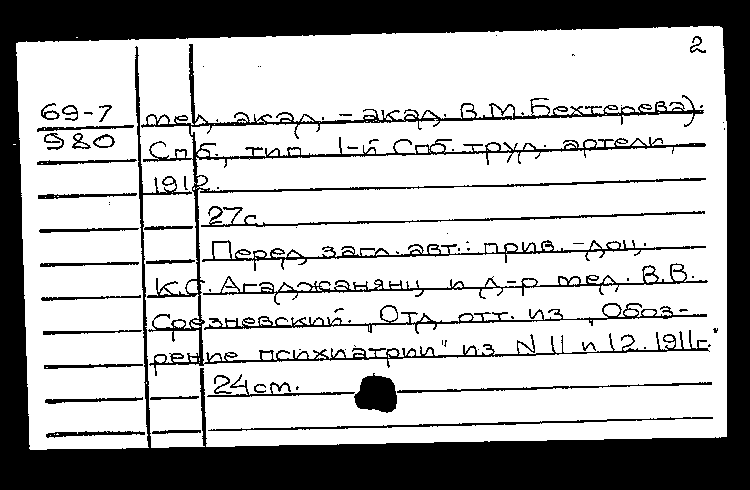 2
69-7
980
мед. акад. - акад. В.М. Бехтерева).
Спб., тип. 1-й Спб. труд. артели,
1912.
27с.
Перед загл. авт.: прив.-доц.
К.С. Агаджанянц и д-р мед. В.В.
Срезневский. „Отд. отт. из „Обоз-
рение психиатрии" из N 11 и 12. 1911г."
24 cm.